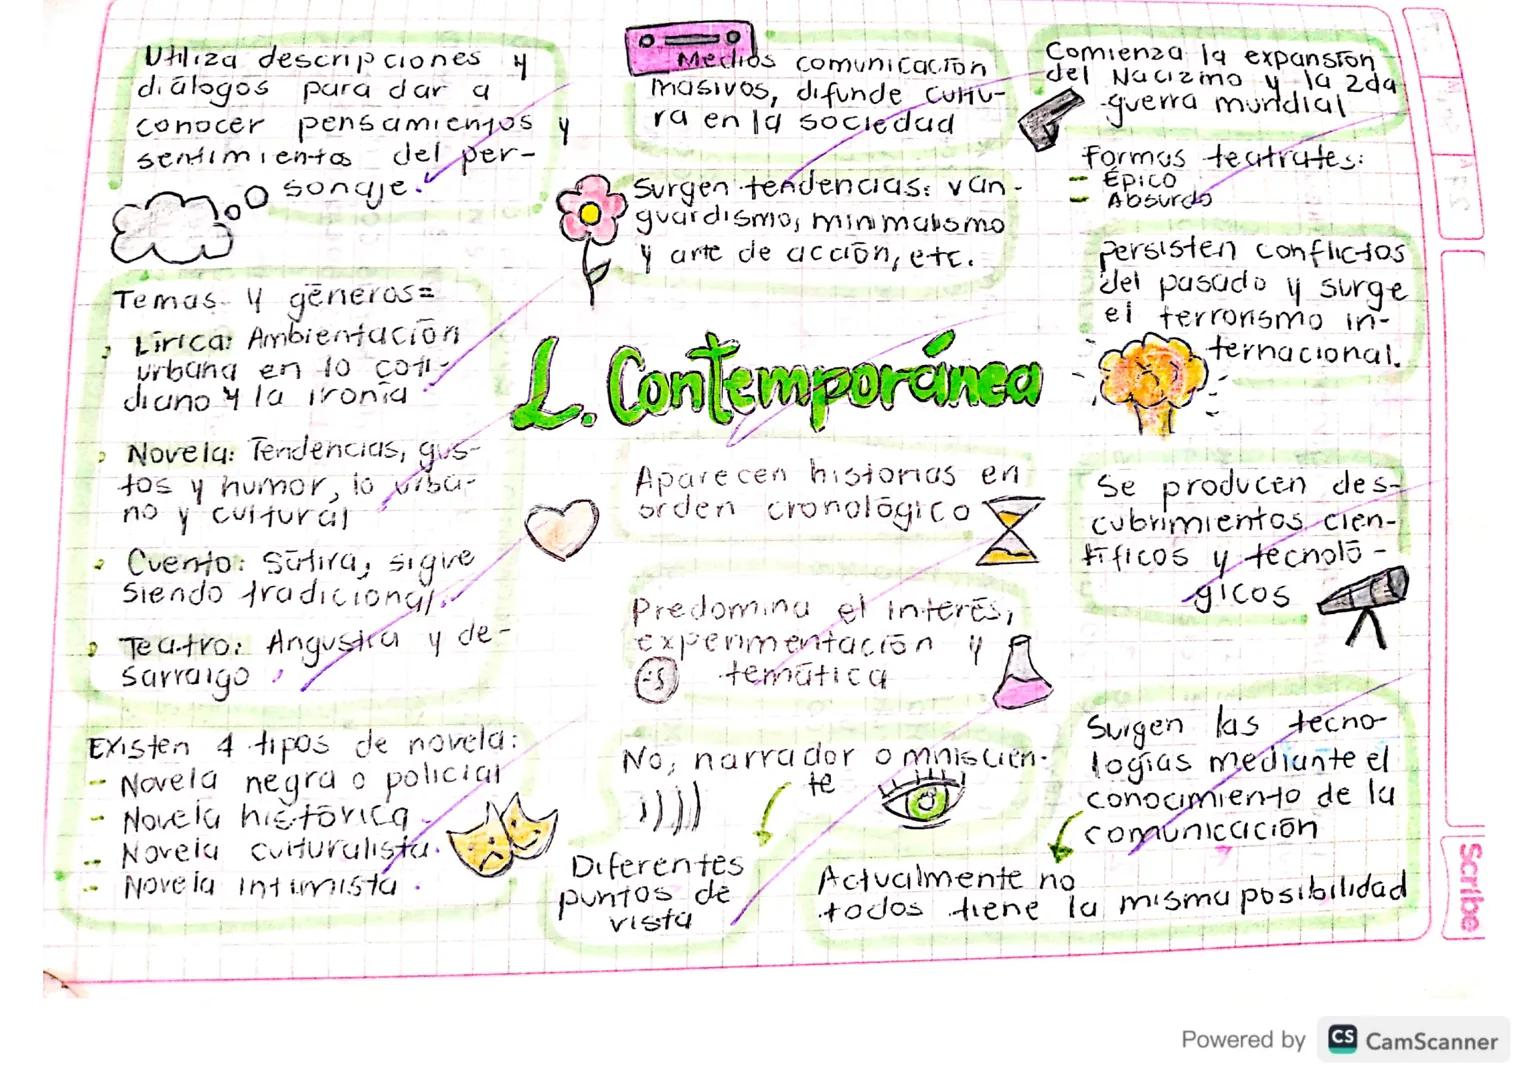 Utiliza descripciones y
diálogos para dar a
conocer pensamientos y
sentimientos del per-
sonaje.
Temas y géneros=
Lírica: Ambientación
urbana en lo coti-
diano y la ironía
Novela: Tendencias, gus-
tos y humor, lo urba-
no y cultural
Cuento: Sátira, sigue
siendo tradicional.
Teatro: Angustia y de-
sarraigo
Existen 4 tipos de novela:
- Novela negra o policial
- Novela histórica
- Novela culturalista.
- Novela intimista.
Medios comunicación
masivos, difunde cultu-
ra en la sociedad
Surgen tendencias: van-
guardismo, minimalismo
y arte de acción, etc.
L. Contemporánea
Aparecen historias en
orden cronológico
Predomina el interés,
experimentación y
temática
No, narrador omniscien-
te
Diferentes
puntos de
vista
Comienza la expansión
del Nacizmo y la 2da
guerra mundial
Formas teatrales:
- Épico
- Absurdo
Persisten conflictos
del pasado y surge
el terrorismo in-
ternacional.
Se producen des-
cubrimientos cien-
tíficos y tecnoló-
gicos
Surgen las tecno-
logías mediante el
conocimiento de la
comunicación
Actualmente no
todos tiene la misma posibilidad
Scribe
Powered by CS CamScanner